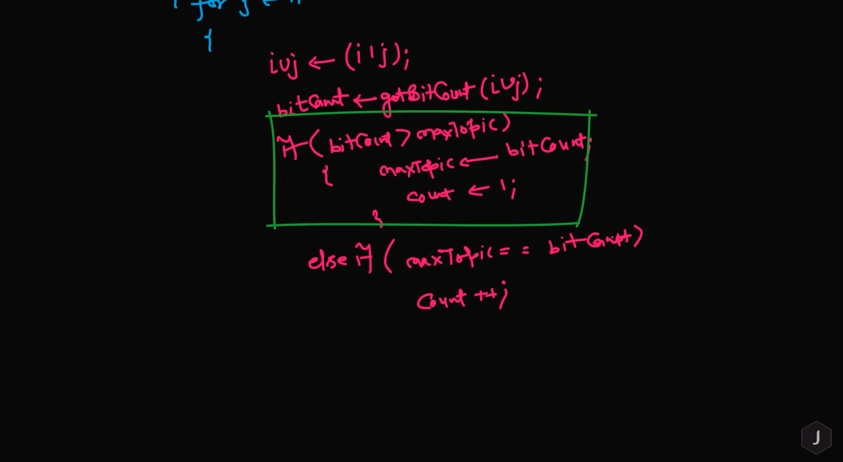 for j ←
{
i∪j ← (i | j);
bitCount ← getBitCount (i∪j);
If ( bitCount > maxTopic )
{ maxTopic ← bitCount;
count ← 1;
}
else If ( maxTopic == bitCount )
Count ++;
J